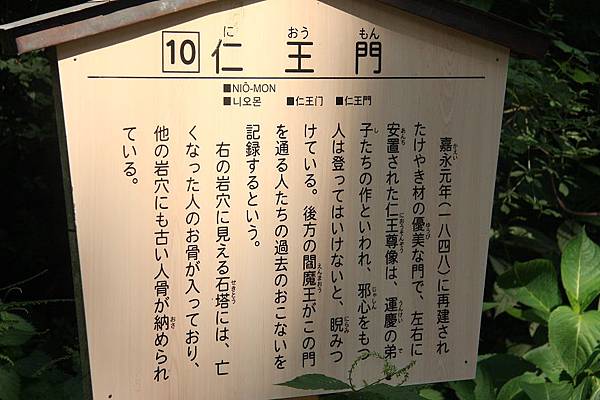 10 仁王門
におうもん
■NIŌ-MON
■니오몬 ■仁王门 ■仁王門
嘉永元年(一八四八)に再建され
たけやき材の優美な門で、左右に
安置された仁王尊像は、運慶の弟
子たちの作といわれ、邪心をもつ
人は登ってはいけないと、睨みつ
けている。後方の閻魔王がこの門
を通る人たちの過去のおこないを
記録するという。
右の岩穴に見える石塔には、亡
くなった人のお骨が入っており、
他の岩穴にも古い人骨が納められ
ている。